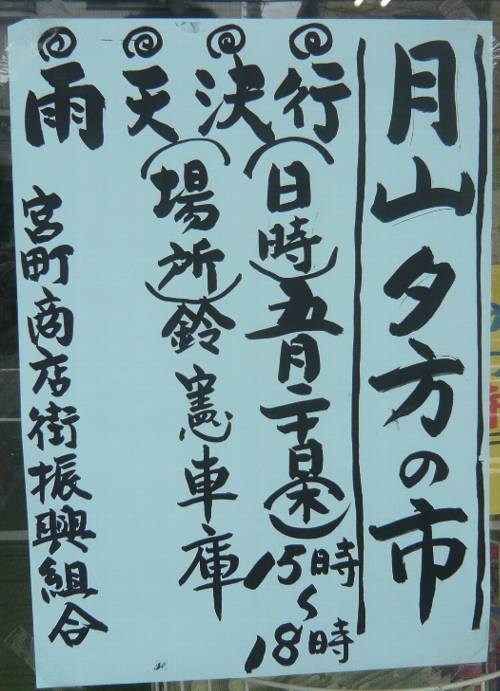 月山夕方の市
雨天決行
(日時)五月二十日(木)
15時~18時
(場所)鈴憲車庫
宮町商店街振興組合